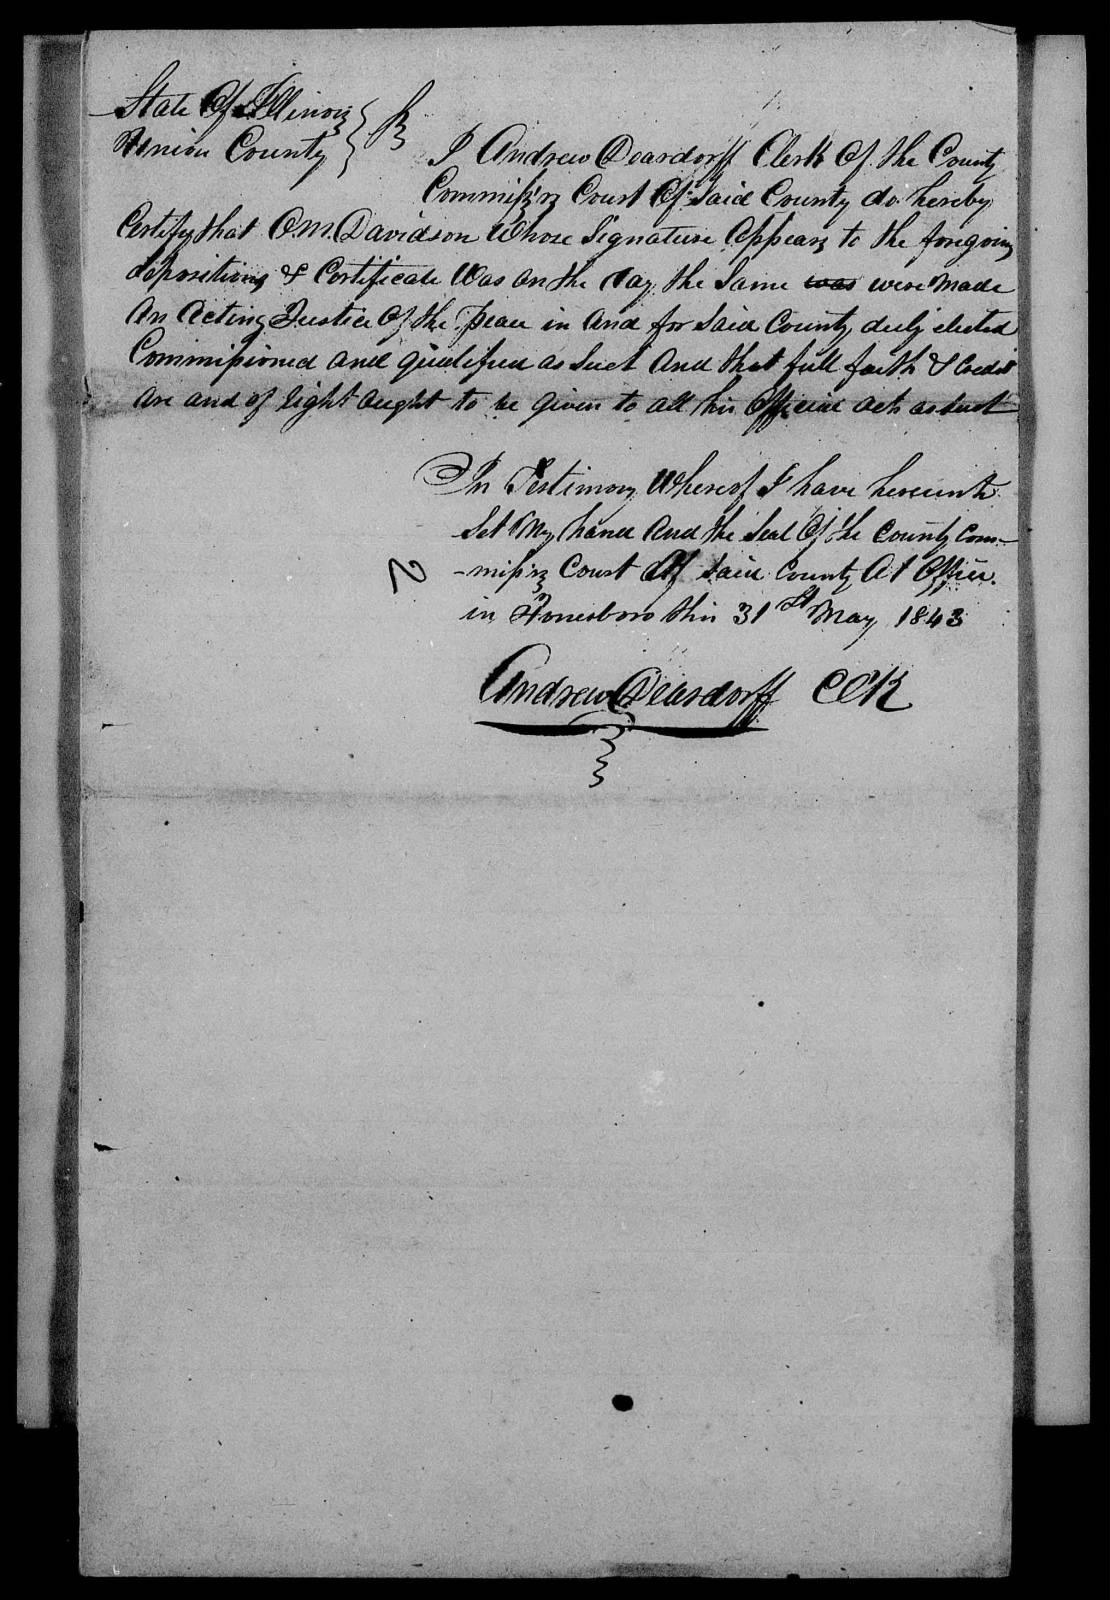 State Of Illinois } ss
Union County }
I Andrew Deardorff Clerk Of the County
Commiss'rs Court Of Said County do hereby
Certify that O.M. Davidson Whose Signature Appears to the foregoing
depositions & Certificate Was on the day the Same was were made
An Acting Justice Of the Peace in And for Said County duly elected
Commissioned and qualified as Such And that full faith & Credit
are and of right aught to be given to all his Official acts as Such
In Testimony Whereof I have hereunto
Set My hand And the Seal Of the County Com-
-miss'rs Court Of Said County At Office
in Jonesboro this 31st May 1843
2
Andrew Deardorff CClk